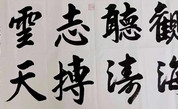 觀海
聽濤
志搏
雲天